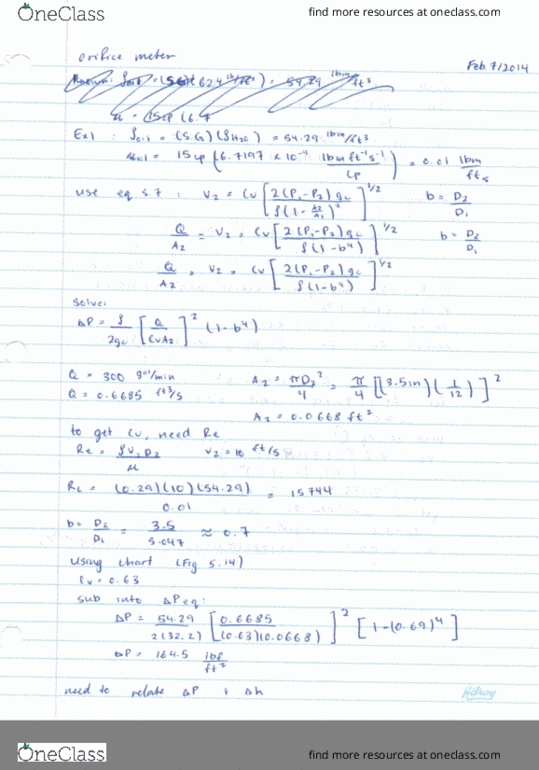 OneClass
find more resources at oneclass.com
orifice meter
Feb. 7/2014
Ex1 : ρoil = (S.G)(ρH2O) = 54.29 lbm/ft³
μoil = 15cp (6.7197 x 10⁻⁴ lbm ft⁻¹s⁻¹ / cp) = 0.01 lbm / ft s
use eq 5.7 : V2 = Cv [ 2(P1-P2)gc / ρ(1- A2/A1)² ]^1/2 b = D2/D1
Q/A2 = V2 = Cv [ 2(P1-P2)gc / ρ(1-b⁴) ]^1/2 b = D2/D1
Q/A2 = V2 = Cv [ 2(P1-P2)gc / ρ(1-b⁴) ]^1/2
solve:
ΔP = ρ/2gc [ Q/CvA2 ]² (1-b⁴)
Q = 300 gal/min A2 = πD2²/4 = π/4 [(3.5in)(1/12)]²
Q = 0.6685 ft³/s
A2 = 0.0668 ft²
to get Cv, need Re
Re = ρV2D2/μ V2 = 10 ft/s
Re = (0.29)(10)(54.29) / 0.01 = 15744
b = D2/D1 = 3.5/5.047 ≈ 0.7
using chart (Fig 5.14)
Cv = 0.63
sub into ΔP eq:
ΔP = 54.29 / 2(32.2) [ 0.6685 / (0.63)(0.0668) ]² [1-(0.69)⁴]
ΔP = 164.5 lbf/ft²
need to relate ΔP + Δh
Hilroy
OneClass
find more resources at oneclass.com